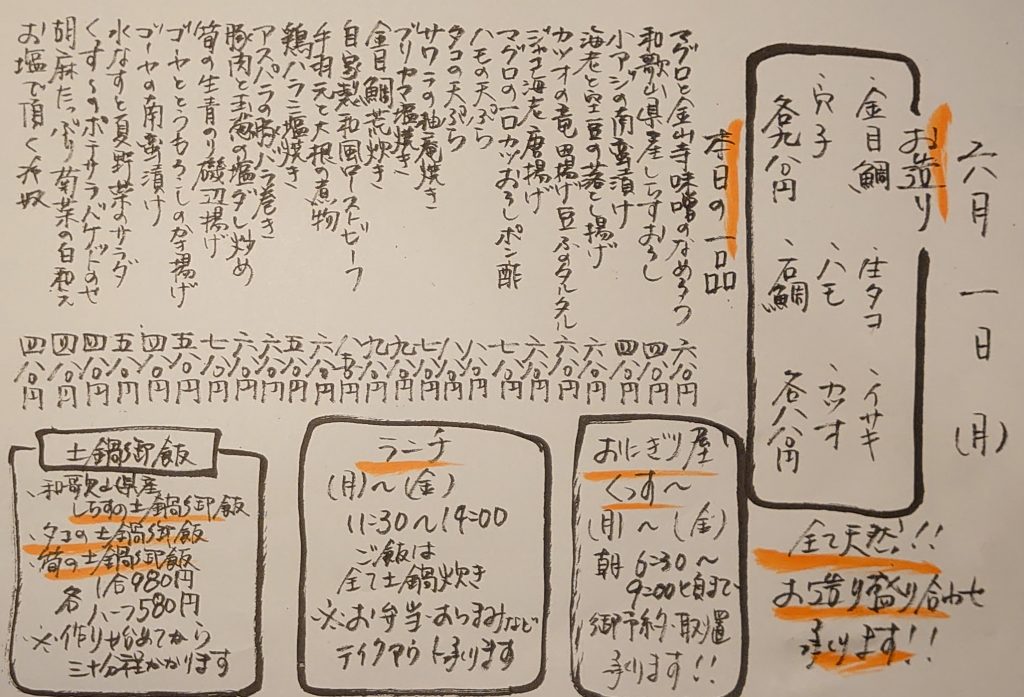 六月一日(月)
お造り
金目鯛 生タコ イサキ
穴子 ハモ カツオ
各九八〇円 石鯛 各八八〇円
全て天然!!
お造り盛り合わせ
承ります!!
本日の一品
マグロと金山寺味噌のなめろう 六八〇円
和歌山県産しらすおろし 四八〇円
小アジの南蛮漬け 四八〇円
海老と空豆の落とし揚げ 六八〇円
カツオの竜田揚げ豆ぷのタルタル 六八〇円
ジャコ海老唐揚げ 六八〇円
マグロの一口カツおろしポン酢 七八〇円
ハモの天ぷら 八八〇円
タコの天ぷら 八八〇円
サワラの柚庵焼き 七八〇円
ブリカマ塩焼き 九八〇円
金目鯛荒炊き 九八〇円
自家製和風ローストビーフ 八五〇円
手羽元と大根の煮物 六八〇円
鶏ハラミ塩焼き 五八〇円
アスパラの豚バラ巻き 六八〇円
豚肉と玉葱の塩ダレ炒め 六八〇円
筍の生青のり磯辺揚げ 七八〇円
ゴーヤととうもろこしのかき揚げ 五八〇円
ゴーヤの南蛮漬け 四八〇円
水なすと夏野菜のサラダ 五八〇円
くすを〜のポテサラバゲットのせ 四八〇円
胡麻たっぷり菊菜の白和え 四八〇円
お塩で頂く冷奴 四八〇円
おにぎり屋
くっす〜
(月)〜(金)
朝 6:30〜
9:00頃まで
御予約・取置
承ります!!
ランチ
(月)〜(金)
11:30〜14:00
ご飯は
全て土鍋炊き
※お弁当・おつまみなど
テイクアウト承ります
土鍋御飯
、和歌山県産
しらすの土鍋御飯
、タコの土鍋御飯
、筍の土鍋御飯
各 1合980円
ハーフ580円
※作り始めてから
三十分程かかります